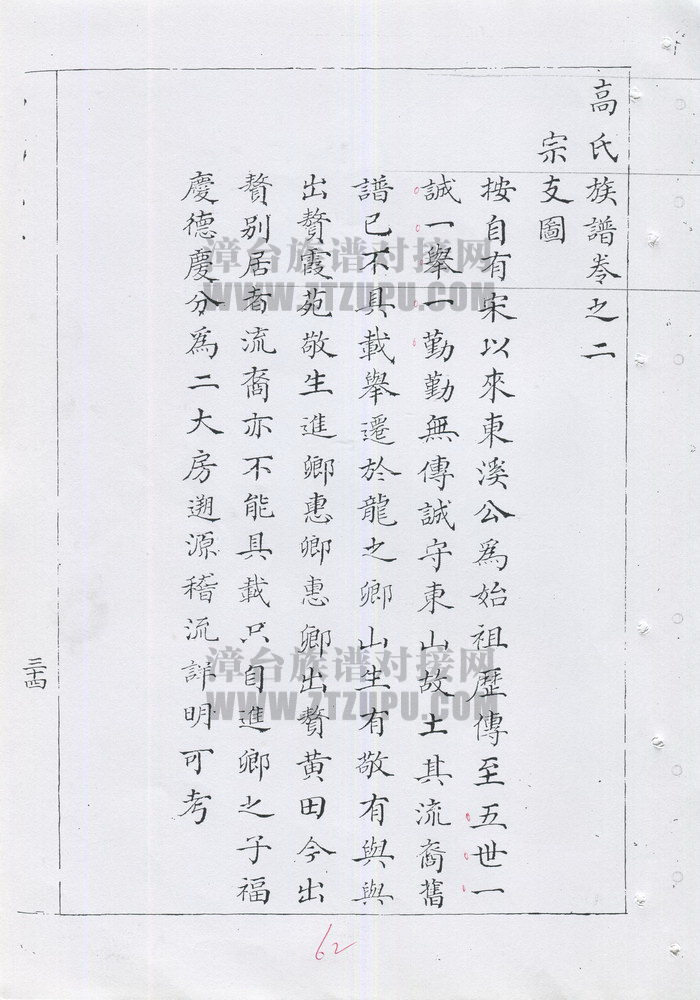 高氏族譜卷之二
宗支圖
按自有宋以來東溪公爲始祖歷傳至五世一
誠一舉一勤勤無傳誠守東山故土其流裔舊
譜已不具載舉遷於龍之卿山生有敬有與與
出贅霞苑敬生進卿惠卿惠卿出贅黄田今出
贅别居者流裔亦不能具載只自進卿之子福
慶德慶分爲二大房遡源稽流詳明可考
三十四
62
漳台族谱对接网
WWW.ZTZUPU.COM
漳台族谱对接网
WWW.ZTZUPU.COM